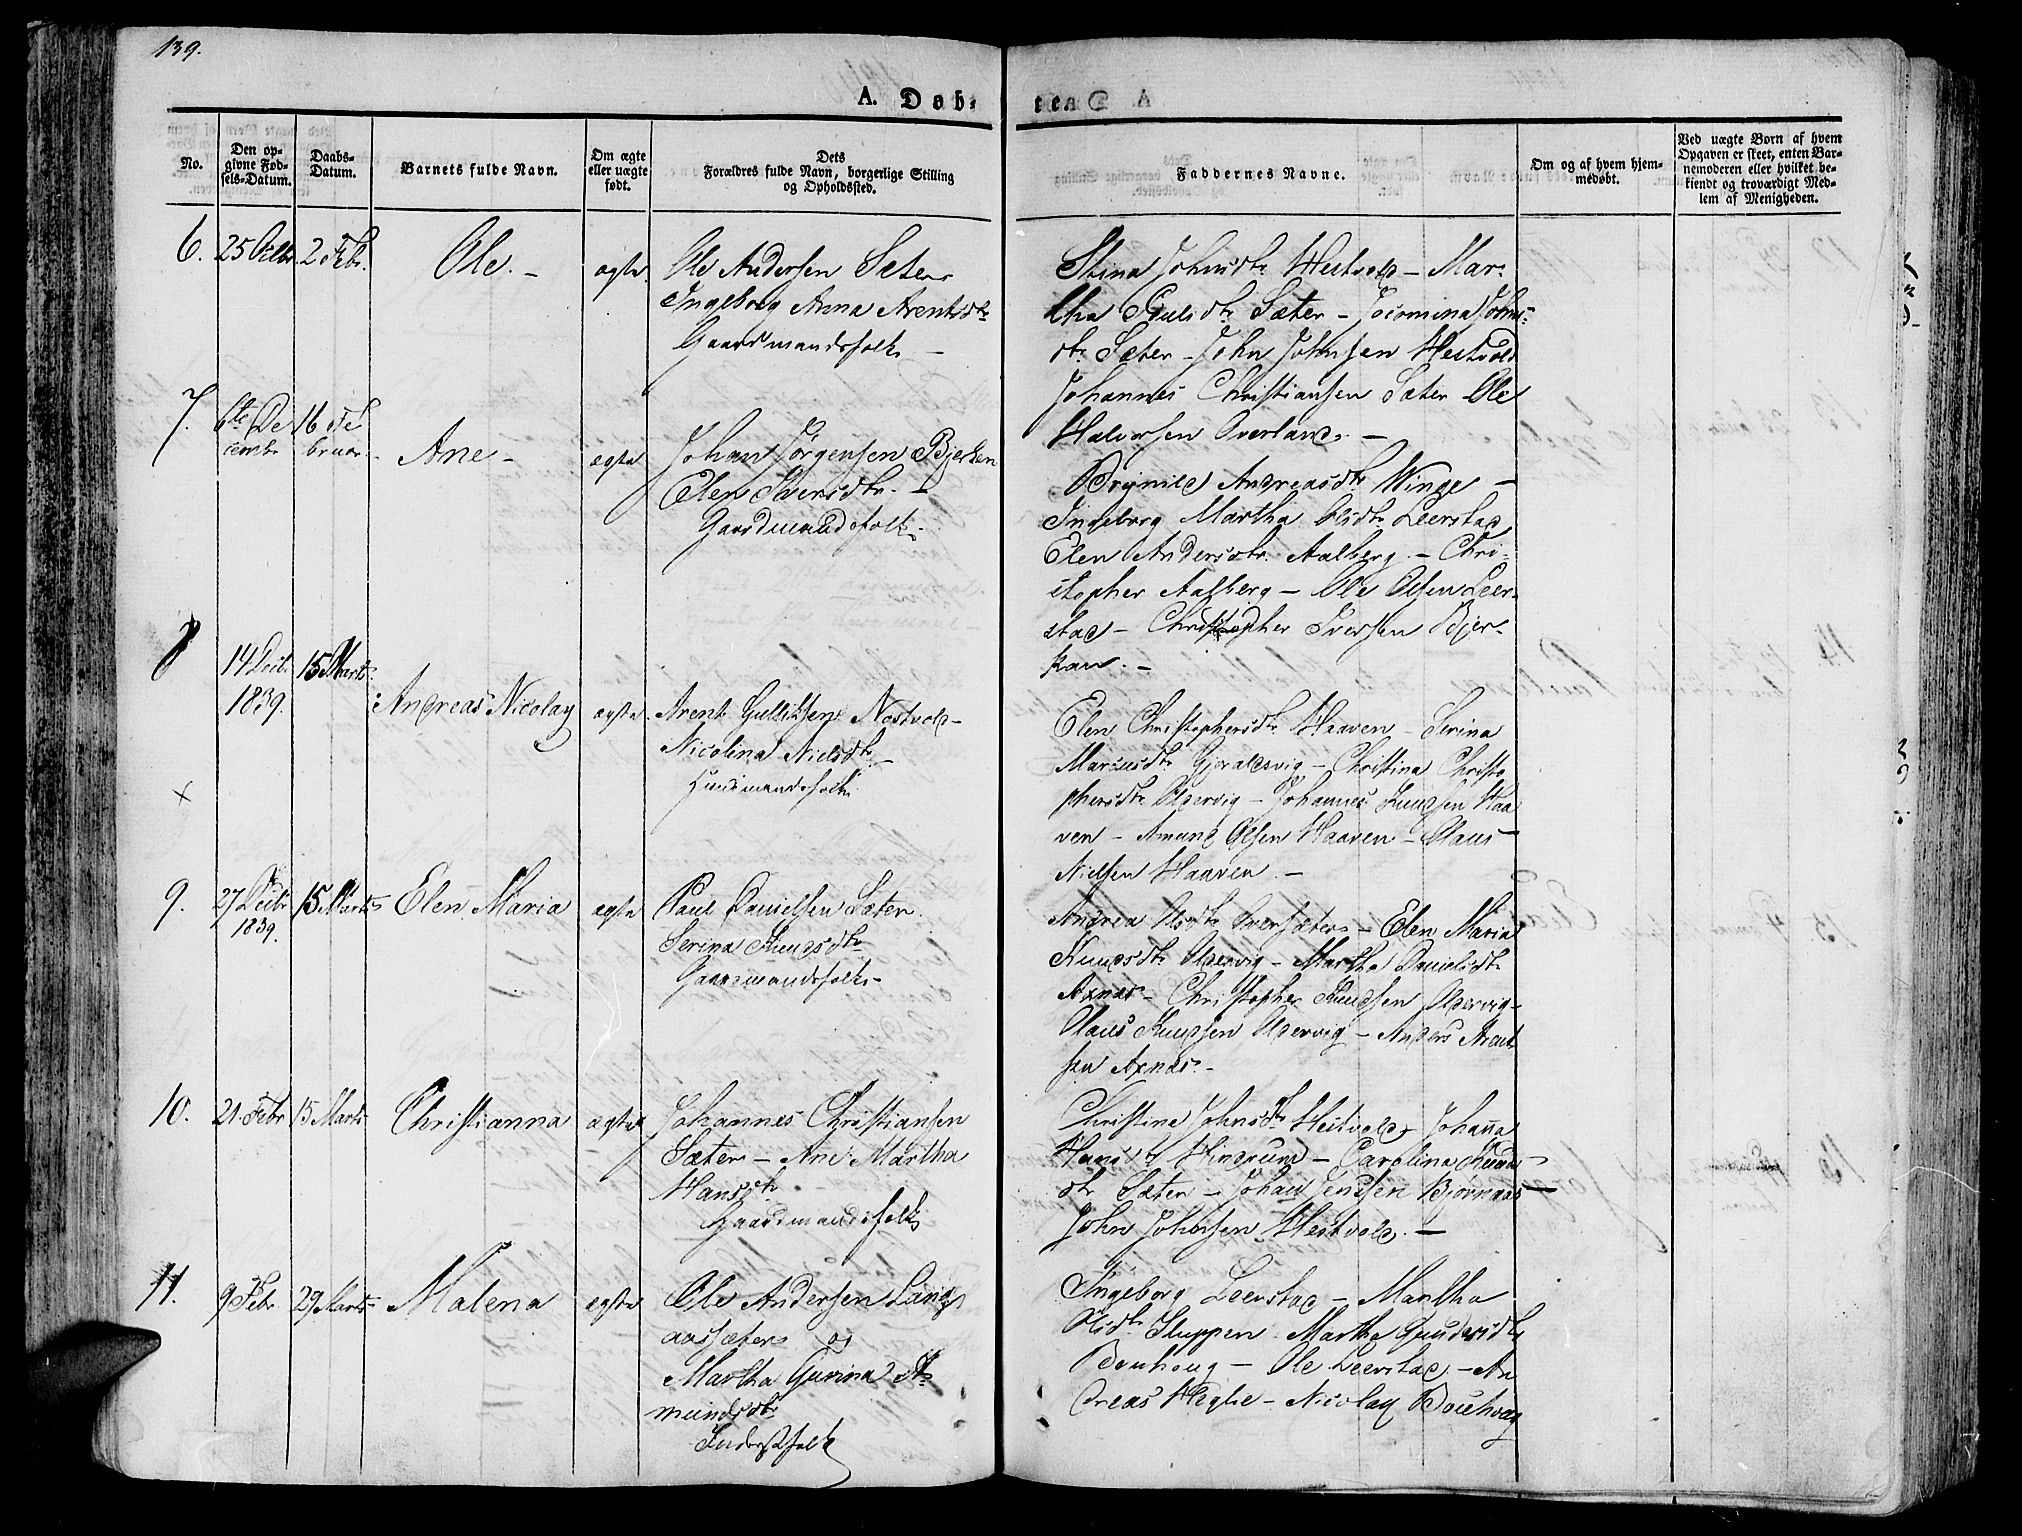 139.
A. Døb-
No.
Den op-
givne Fød-
sels-Datum.
Daabs-
Datum.
Barnets fulde Navn.
Om ægte
eller uægte
født.
Dets
Forældres fulde Navn, borgerlige Stilling
og Opholdssted.
Faddernes Navne.
Om og af hvem hjem-
medøbt.
Ved uægte Børn af hvem
Opgaven er skeet, enten Bar-
nemoderen eller hvilket be-
kiendt og troværdigt Med-
lem af Menigheden.
6. 25 2 Febr. Ole. - ægte Ole Andersen Sæter
Ingeborg Anna Arentsdtr
Gaardmandsfolk -
Stina Johnsdtr Hestvold - Mar-
tha Paulsdtr Sæter - Johns-
dtr Sæter - John Johnsen Hestvold
Johannes Christiansen Sæter Ole
Halvorsen Overland. -
7. 6te De
cembr 16 Fe
bruar. Ane - ægte Johan Jørgensen Bjerkan
Elen Iversdtr. -
Gaardmandsfolk.
Brynild Andreasdtr Winge -
Ingeborg Martha Olsdtr Leerstad
Elen Andersdtr Aalberg. - Chri-
stopher Aalberg - Ole Olsen Leer-
stad - Christopher Iversen Bjer-
kan. -
8 14 Decbr.
1839. 15 Marts Andreas Nicolay ægte Arent Gulliksen Nostvold -
Nicolina Nielsdtr -
Huusmandsfolk
Elen Christophersdtr Haaven - Serina
Marcusdtr Gjeraldsvig - Christina Christo
phersdtr Oldervig - Johannes Knudsen Haa
ven - Amund Olsen Haaven - Olaus
Nielsen Haaven. -
9. 27 Decbr
1839. 15 Marts Elen Maria ægte Paul Danielsen Sæter.
Serina Knudsdtr
Gaardmandsfolk -
Andrea Olsdtr Oversæter - Elen Maria
Knudsdtr Oldervig - Martha Danielsdtr
Axnæs - Christopher Knudsen Oldervig -
Olaus Knudsen Oldervig - Anders Arent
sen Axnæs. -
10. 21. Febr 15 Marts Christianna ægte Johannes Christiansen
Sæter - Ane Martha
Hansdtr
Gaardmandsfolk
Christina Johnsdtr Hestvold - Johanna
Hansdtr Hindrum - Carolina Knuds
dtr Sæter - Johan Jensen Bjørnaas -
John Johnsen Hestvold. -
11. 9 Febr 29 Marts Malena ægte Ole Andersen Lang
aassæter og
Martha Gurina A-
mundsdtr
Inderstfolk
Ingeborg Leerstad - Martha
Olsdtr Sluppen. Martha Gundersdtr
Bouhoug - Ole Leerstad - An
dreas Heglie - Nicolay Bouhoug